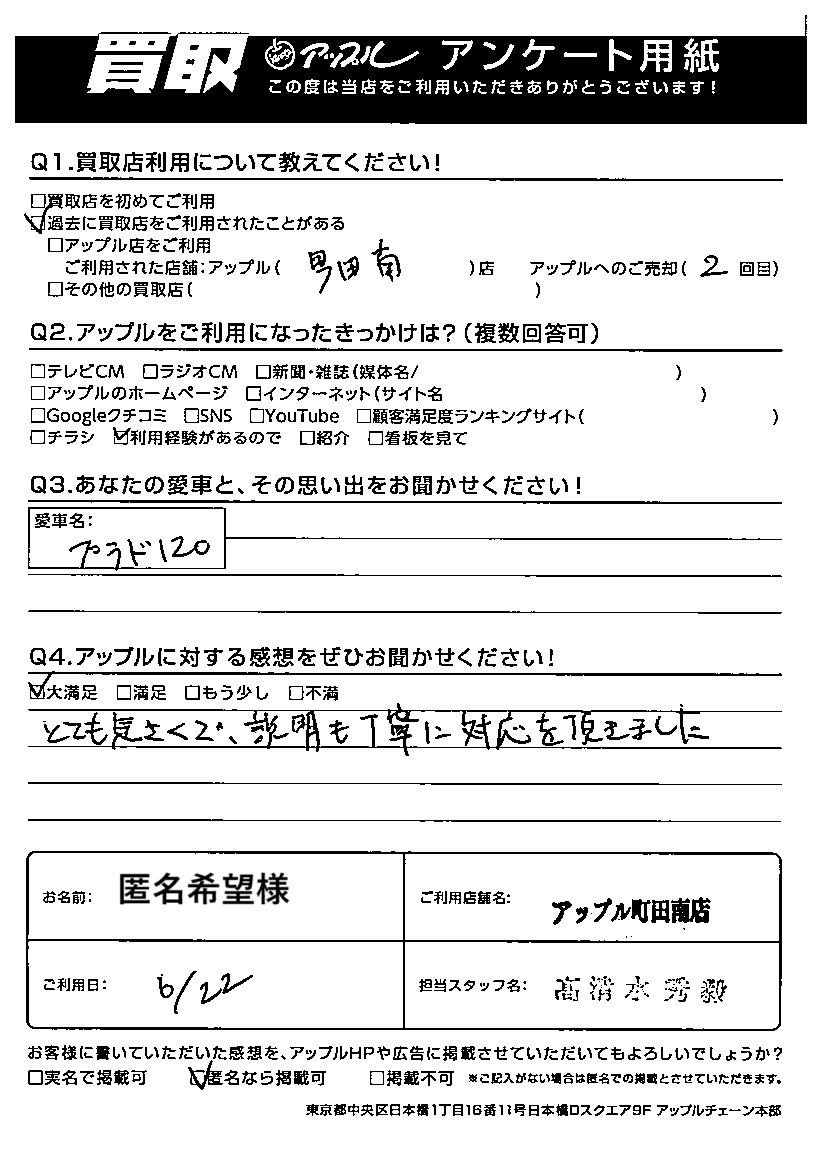 買取 アップル アンケート用紙
この度は当店をご利用いただきありがとうございます!
Q1.買取店利用について教えてください!
□買取店を初めてご利用
☑過去に買取店をご利用されたことがある
□アップル店をご利用
ご利用された店舗:アップル( 町田南 )店 アップルへのご売却( 2 回目)
□その他の買取店( )
Q2.アップルをご利用になったきっかけは?(複数回答可)
□テレビCM □ラジオCM □新聞・雑誌(媒体名/ )
□アップルのホームページ □インターネット(サイト名 )
□Googleクチコミ □SNS □YouTube □顧客満足度ランキングサイト( )
□チラシ ☑利用経験があるので □紹介 □看板を見て
Q3.あなたの愛車と、その思い出をお聞かせください!
愛車名:
プラド120
Q4.アップルに対する感想をぜひお聞かせください!
☑大満足 □満足 □もう少し □不満
とても気さくで、説明も丁寧に対応を頂きました
お名前: 匿名希望様 ご利用店舗名: アップル町田南店
ご利用日: 6/22 担当スタッフ名: 高清水秀毅
お客様に書いていただいた感想を、アップルHPや広告に掲載させていただいてもよろしいでしょうか?
□実名で掲載可 ☑匿名なら掲載可 □掲載不可 ※ご記入がない場合は匿名での掲載とさせていただきます。
東京都中央区日本橋1丁目16番11号日本橋Dスクエア9F アップルチェーン本部